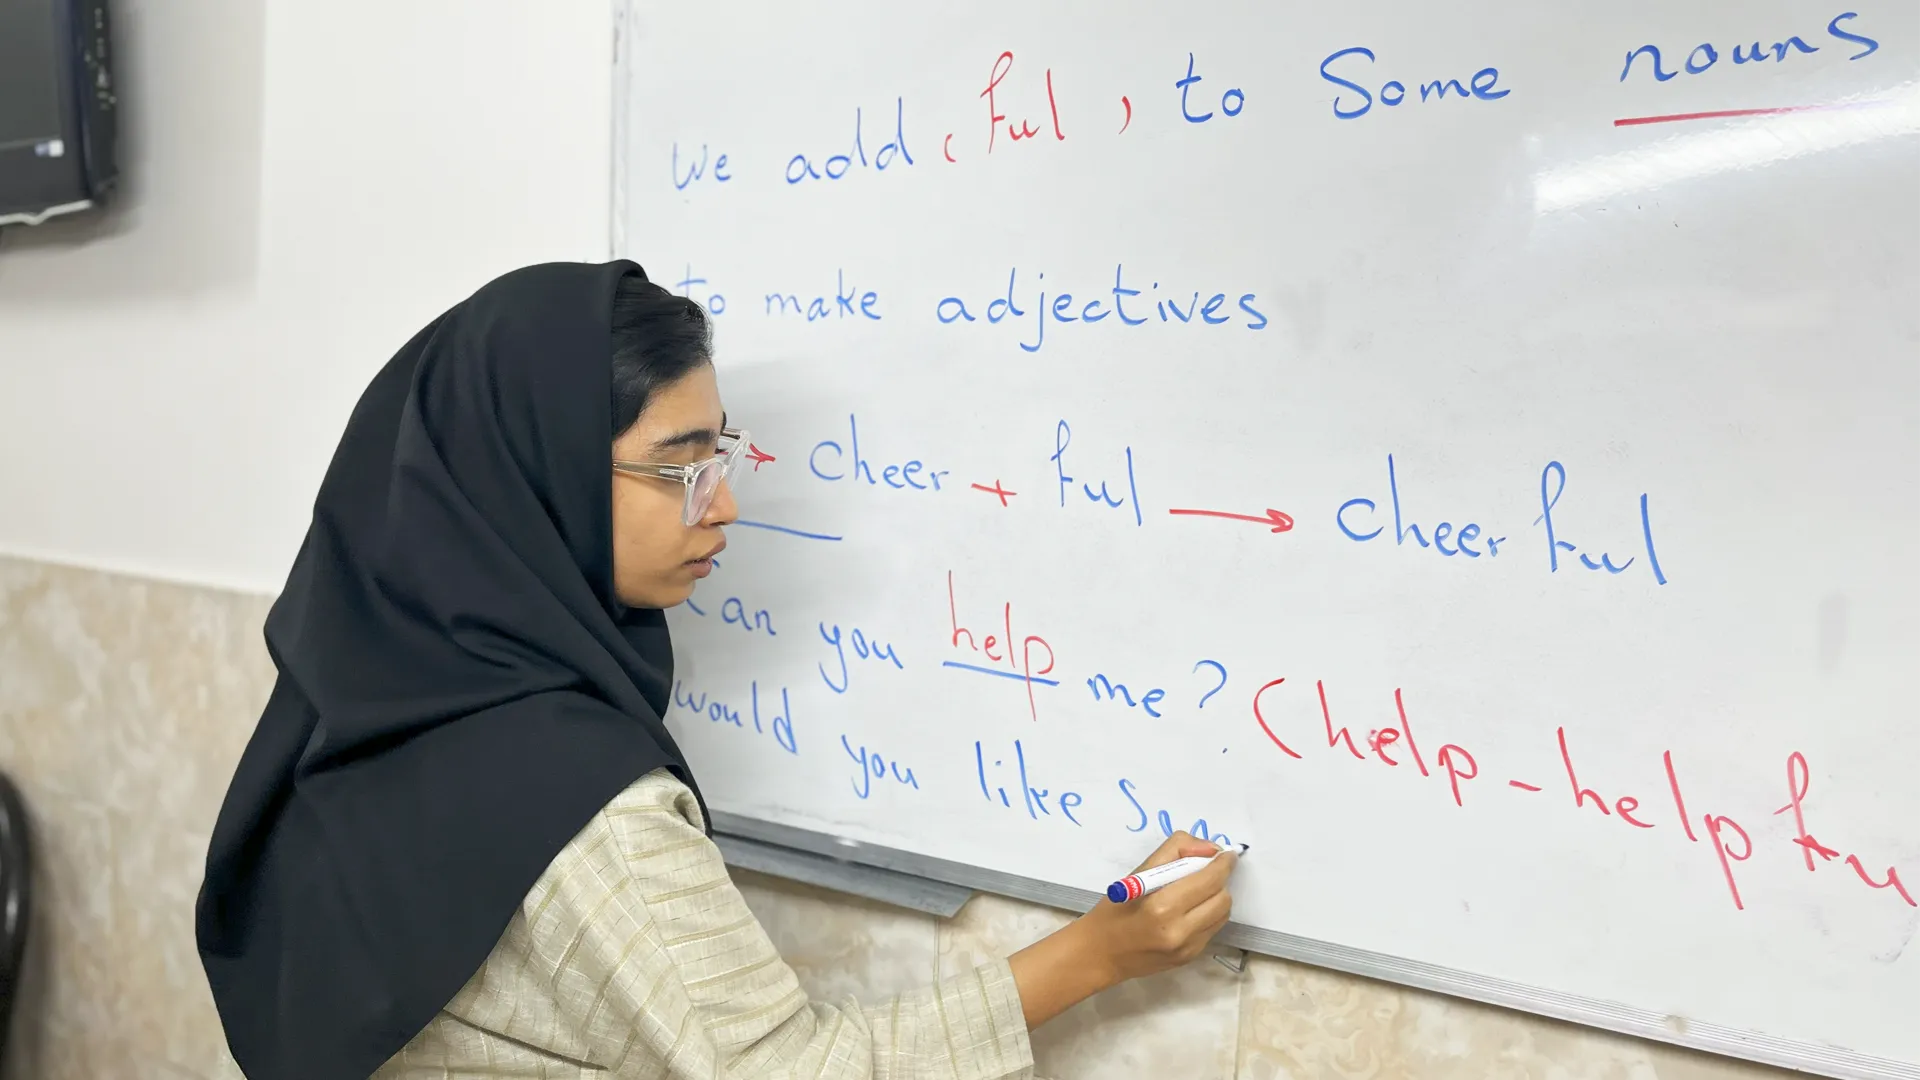 we add ‘ful’ to Some nouns
to make adjectives
cheer + ful → cheerful
Can you help me? (help - helpfu
would you like